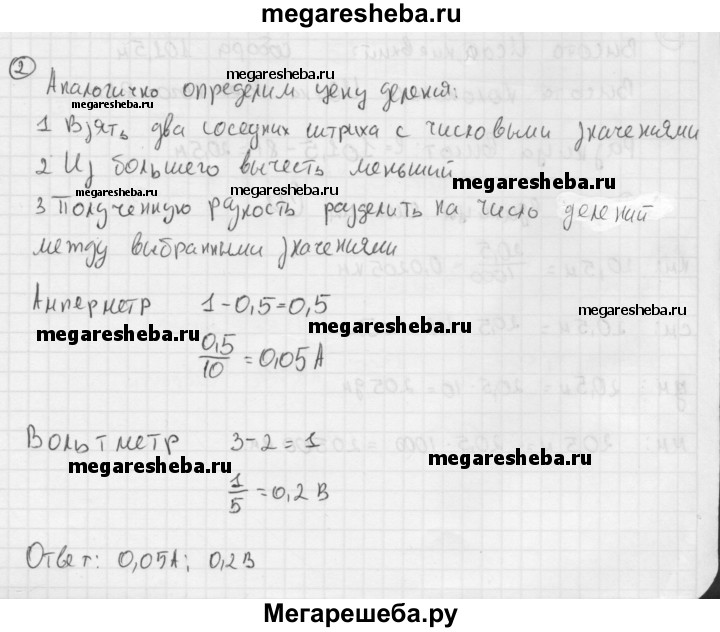 megaresheba.ru
2
Аналогично определим цену деления:
megaresheba.ru
megaresheba.ru
1 Взять два соседних штриха с числовыми значениями
2 Из большего вычесть меньший
megaresheba.ru
megaresheba.ru
3 Полученную разность разделить на число делений
между выбранными значениями
Амперметр 1-0,5=0,5
megaresheba.ru
megaresheba.ru
megaresheba.ru
0,5/10 = 0,05А
Вольтметр 3-2=1
megaresheba.ru
megaresheba.ru
1/5 = 0,2 В
Ответ: 0,05А; 0,2В
Мегарешеба.ру